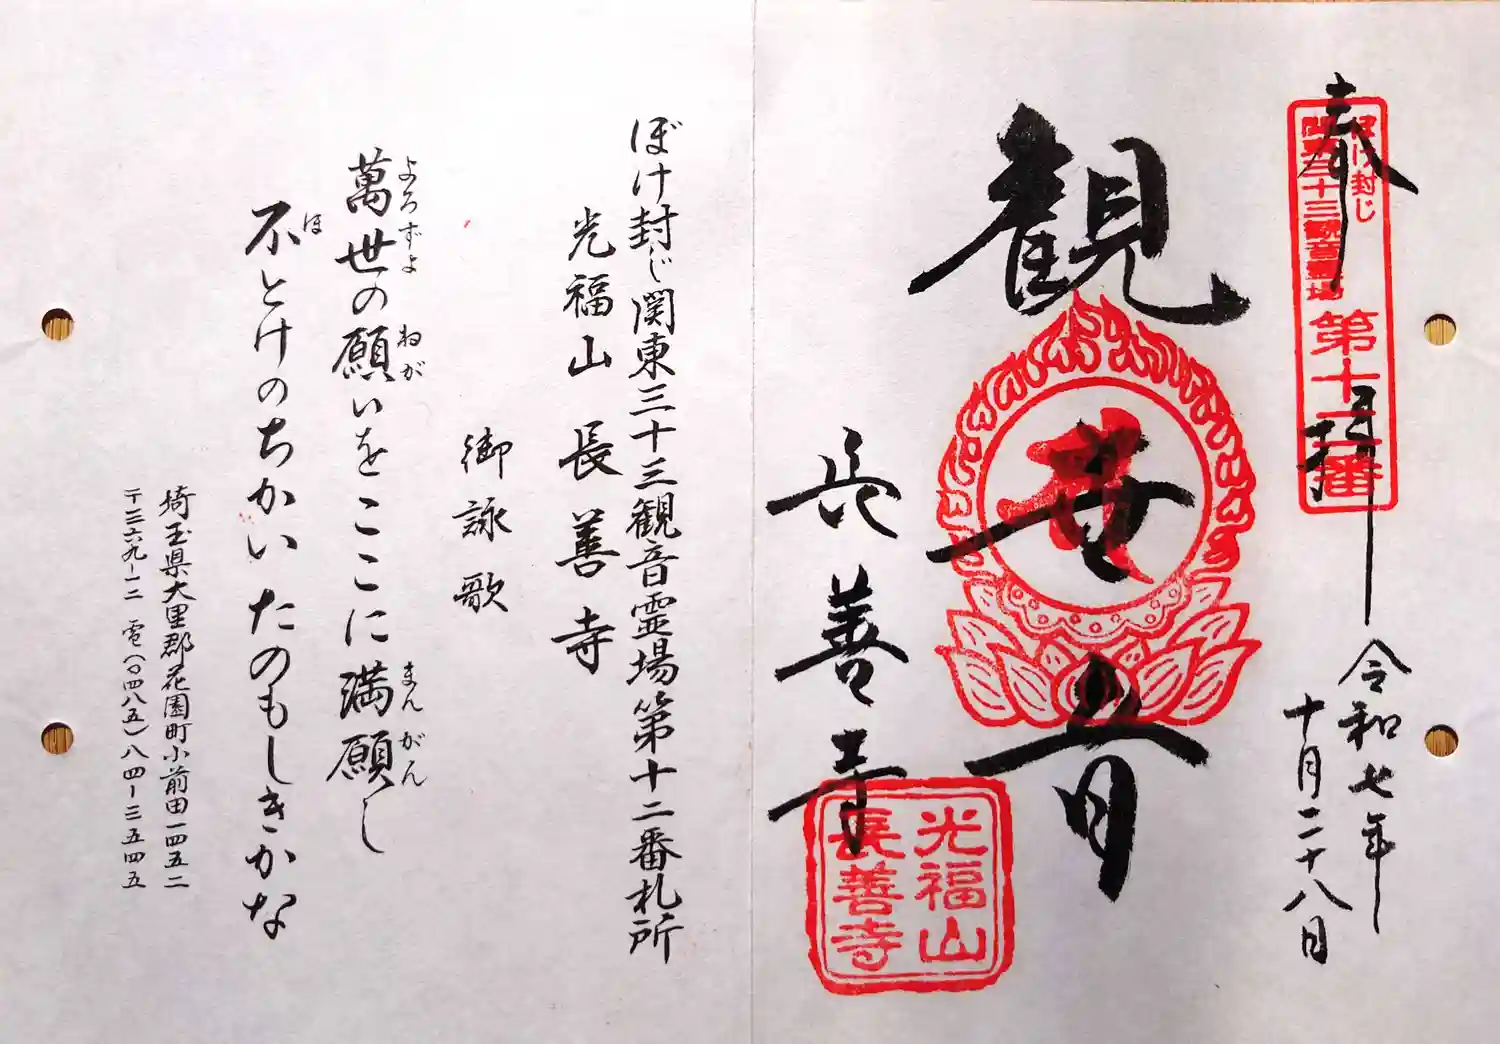 奉拝
ぼけ封じ
関東三十三観音霊場
第十二番
令和七年
十月二十八日
観世音
長善寺
光福山
長善寺
ぼけ封じ関東三十三観音霊場第十二番札所
光福山 長善寺
御詠歌
萬世の願いをここに満願し
よろずよ ねが まんがん
不とけのちかいたのもしきかな
ほ
埼玉県大里郡花園町小前田一四五二
〒三六九-一二 電(〇四八五)八四-三五四五